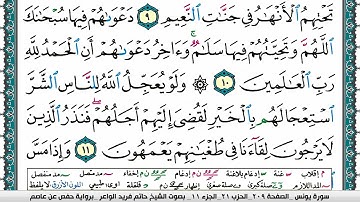 تَحْتِهِمُ ٱلْأَنْهَٰرُ فِي جَنَّٰتِ ٱلنَّعِيمِ ٩ دَعْوَىٰهُمْ فِيهَا سُبْحَٰنَكَ
ٱللَّهُمَّ وَتَحِيَّتُهُمْ فِيهَا سَلَٰمٌۚ وَءَاخِرُ دَعْوَىٰهُمْ أَنِ ٱلْحَمْدُ لِلَّهِ
رَبِّ ٱلْعَٰلَمِينَ ١٠ ۞ وَلَوْ يُعَجِّلُ ٱللَّهُ لِلنَّاسِ ٱلشَّرَّ
ٱسْتِعْجَالَهُم بِٱلْخَيْرِ لَقُضِيَ إِلَيْهِمْ أَجَلُهُمْۖ فَنَذَرُ ٱلَّذِينَ
لَا يَرْجُونَ لِقَآءَنَا فِي طُغْيَٰنِهِمْ يَعْمَهُونَ ١١ وَإِذَا مَسَّ
سورة يونس - الصفحة ٢٠٩ - الحزب ٢١ - الجزء ١١ بصوت الشيخ حاتم فريد الواعر - برواية حفص عن عاصم